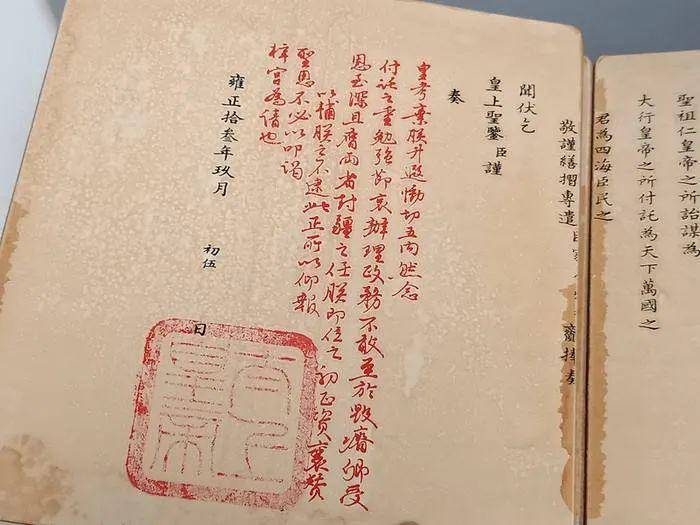 聖祖仁皇帝之所詒謀為
大行皇帝之所付託為天下萬國之
君為四海臣民之
敬謹繕摺專遣臣家人齎捧奏
聞伏乞
皇上聖鑒臣謹
奏
皇考棄朕升遐慟切五內然念
付託之重勉強節哀辦理政務不敢至於毀瘠卿受
恩至深且膺兩省封疆之任朕即位之初正資襄贊
以輔朕之不逮此正所以仰報
聖恩不必以叩謁
梓宮為情也
雍正拾叁年玖月初伍日